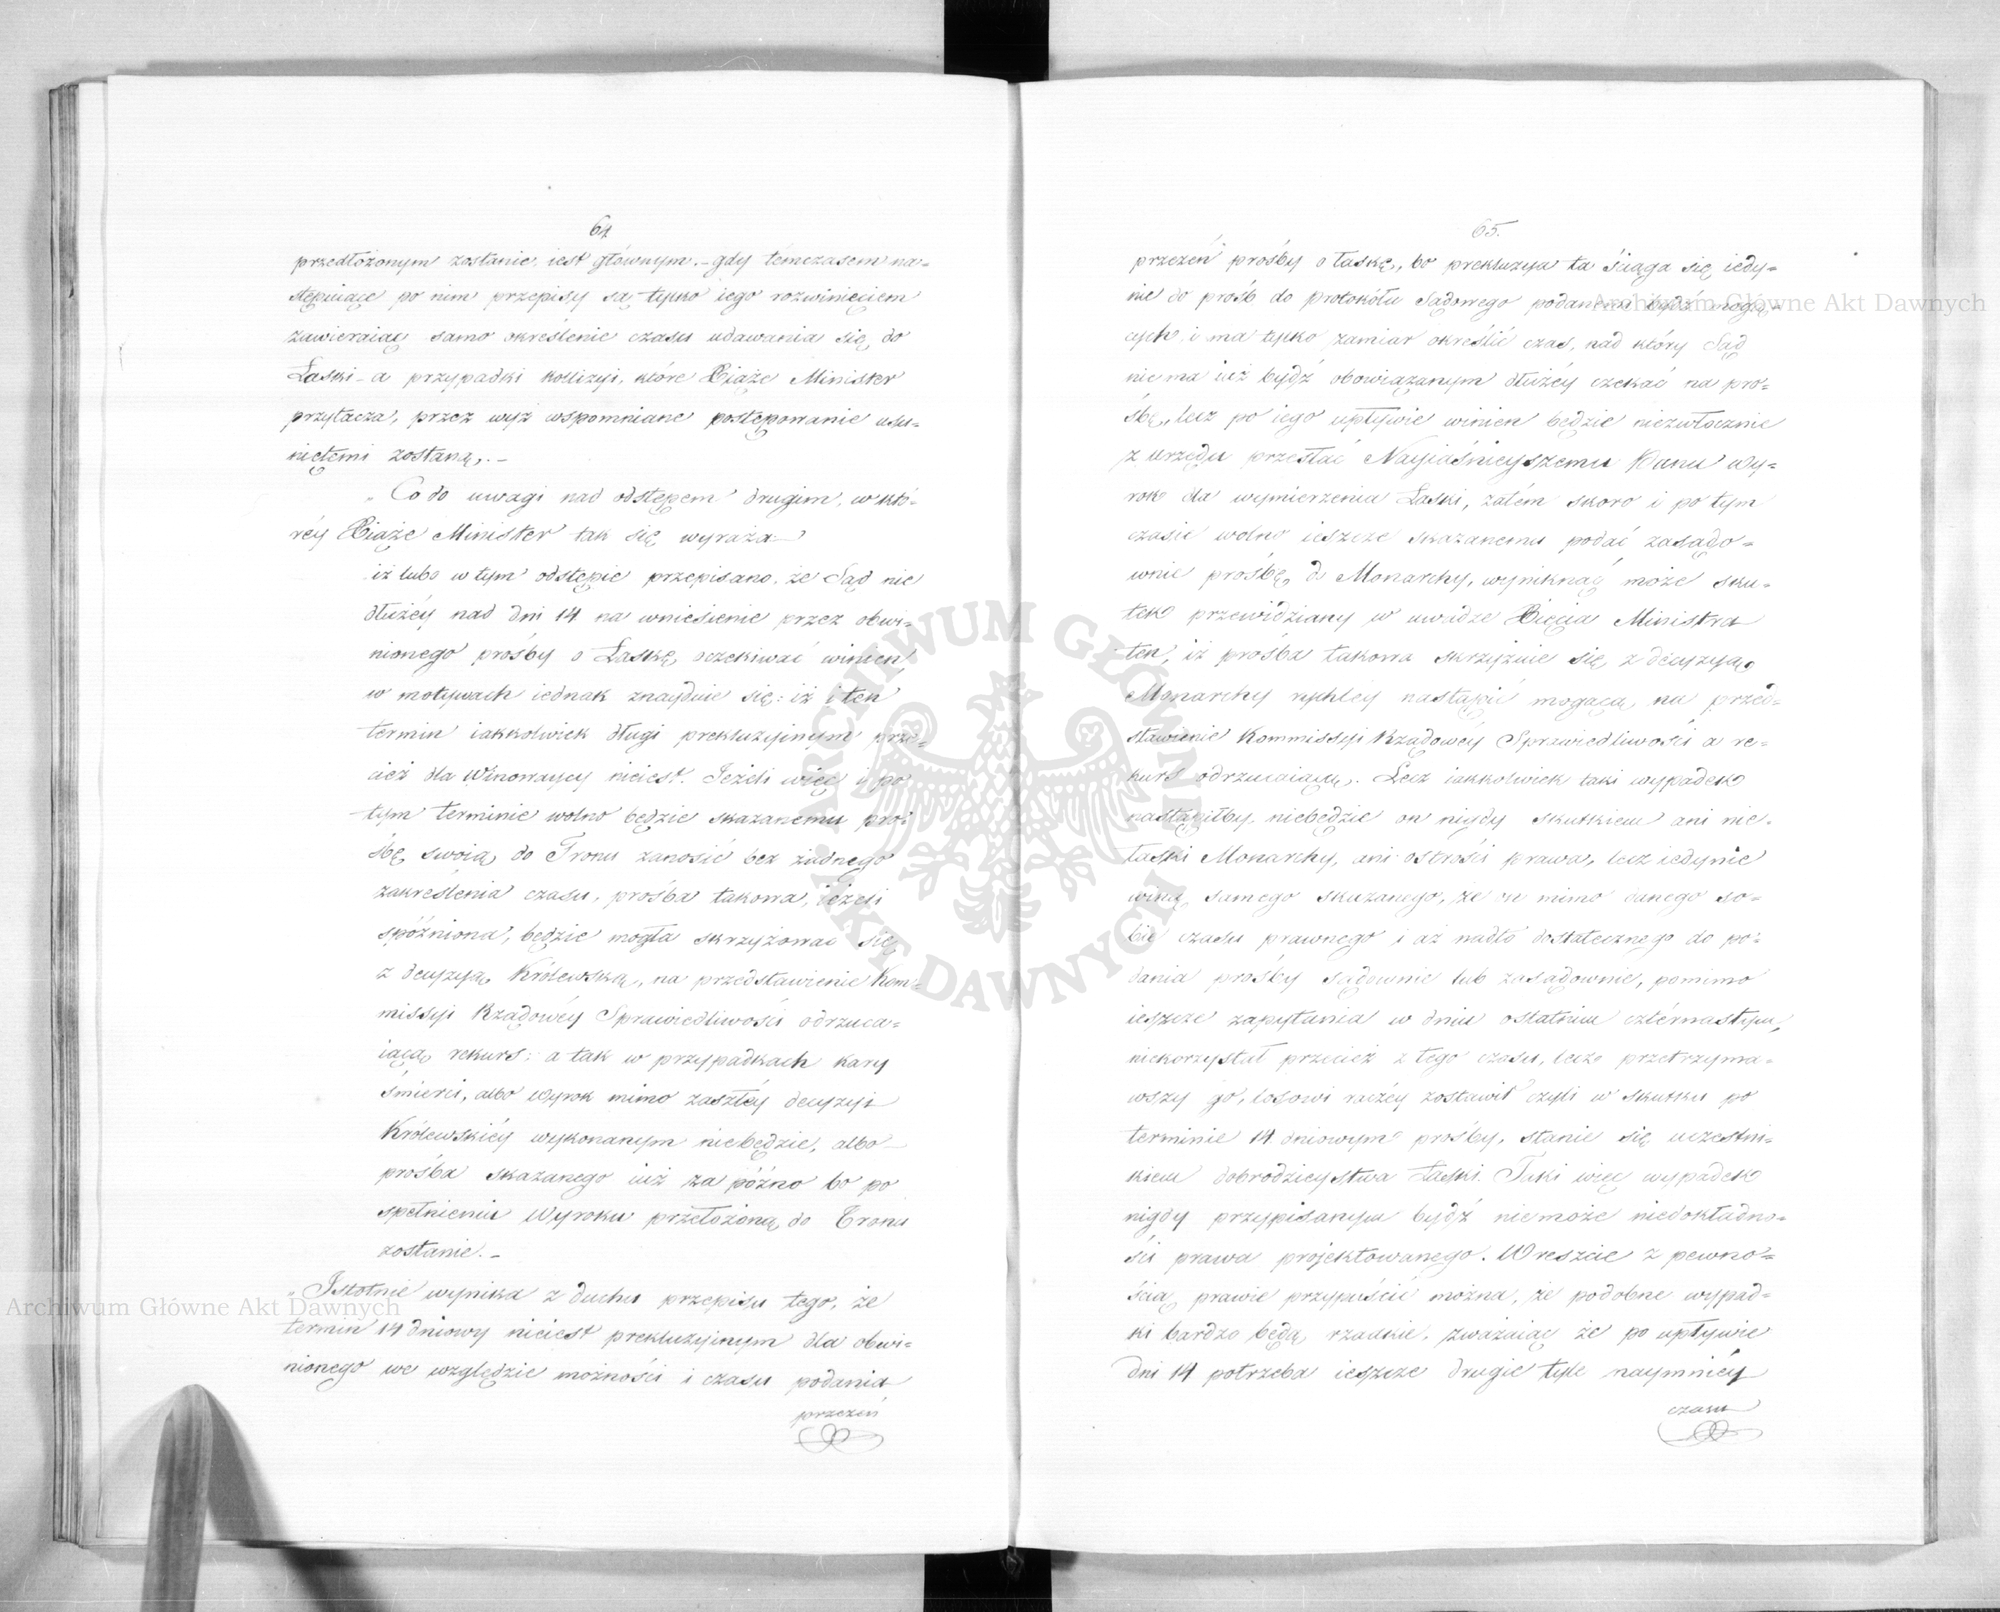 64
przedłożonym zostanie, iest głównym. – gdy tymczasem na-
stępuiące po nim przepisy są tylko iego rozwinięciem
zawieraiąc samo określenie czasu udawania się do
Łaski – a przypadki kollizyi, które Xiąże Minister
przytacza, przez wyż wspomniane postępowanie usu-
niętemi zostaną. –
„Co do uwagi nad odstępem drugim, w któ-
réy Xiąże Minister tak się wyraża
iż lubo w tym odstępie przepisano, że Sąd nie
dłużéy nad dni 14 na wniesienie przez obwi-
nionego prośby o Łaskę oczekiwać winien,
w motywach iednak znayduie się: iż i ten
termin iakkolwiek długi prekluzyinym prze-
cież dla Winowaycy nieiest. Jeżeli więc i po
tym terminie wolno będzie skazanemu pro-
śbę swoią do Tronu zanosić bez żadnego
zakréślenia czasu, prośba takowa, ieżeli
spóźniona, będzie mogła skrzyżować się
z decyzyą Królewską, na przedstawienie Kom-
missyi Rządowéy Sprawiedliwości odrzuca-
iącą rekurs: a tak w przypadkach kary
śmierci, albo Wyrok mimo zaszłéy decyzyi
Królewskiéy wykonanym niebędzie, albo
prośba skazanego iuż za późno bo po
spełnieniu Wyroku przełożoną do Tronu
zostanie. –
„Istotnie wynika z duchu przepisu tego, że
termin 14 dniowy nieiest prekluzyinym dla obwi-
nionego we względzie możności i czasu podania
przezeń
65.
przezeń prośby o łaskę, bo prekluzya ta ściąga się iedy-
nie do prośb do protokółu Sądowego podanemi bydź mogą-
cych, i ma tylko zamiar określić czas, nad który Sąd
nie ma iuż bydź obowiązanym dłużéy czekać na pro-
śbę, lecz po iego upływie winien będzie niezwłocznie
z urzędu przesłać Nayiaśnieyszemu Panu wy-
rok dla wymierzenia Łaski, zatém skoro i po tym
czasie wolno ieszcze skazanemu podać zasądo-
wnie prośbę do Monarchy, wyniknąć może sku-
tek przewidziany w uwadze Xięcia Ministra
ten, iż prośba takowa skrzyżuie się z decyzyą
Monarchy rychléy nastąpić mogącą na przed-
stawienie Kommissyi Rządowéy Sprawiedliwości a re-
kurs odrzucaiącą. Lecz iakkolwiek taki wypadek
nastąpiłby, niebędzie on nigdy skutkiem ani nie-
łaski Monarchy, ani ostrości prawa, lecz iedynie
winą samego skazanego, że on mimo danego so-
bie czasu prawnego i aż nadto dostatecznego do po-
dania prośby sądownie lub zasądownie, pomimo
ieszcze zapytania w dniu ostatnim czternastym,
niekorzystał przecież z tego czasu, lecz przetrzyma-
wszy go, losowi raczéy zostawił czyli w skutku po
terminie 14 dniowym prośby, stanie się uczestni-
kiem dobrodzieystwa Łaski. Taki więc wypadek
nigdy przypisanym bydź niemoże niedokładno-
ści prawa projektowanego. Wreszcie z pewno-
ścią prawie przypuścić można, że podobne wypad-
ki bardzo będą rzadkie, zważaiąc że po upływie
dni 14 potrzeba ieszcze drugie tyle naymniéy
czasu
Archiwum Główne Akt Dawnych
Archiwum Główne Akt Dawnych
ARCHIWUM GŁÓWNE AKT DAWNYCH